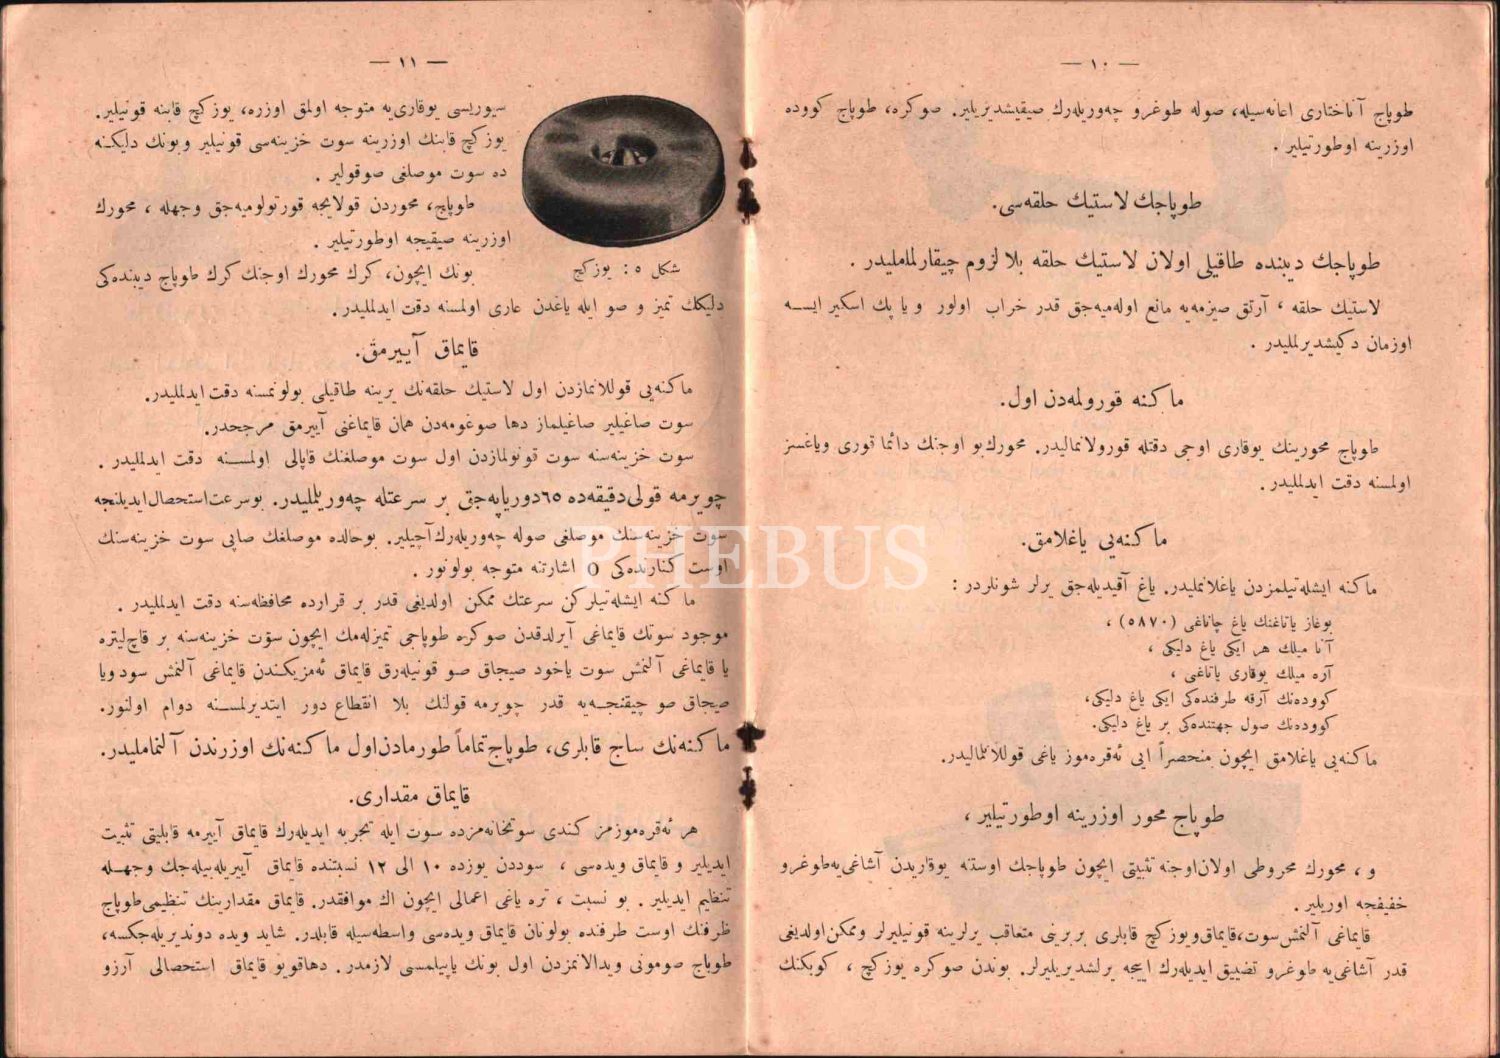 — ١٠ —
طوپاج آناختاری اعانه‌سیله، صوله طوغرو چه‌وریله‌رك صیقیشدیریلیر. صوكره، طوپاج كووده
اوزرینه اوطورتیلیر .
طوپاجك لاستیك حلقه‌سی.
طوپاجك دیبنده طاقیلی اولان لاستیك حلقه بلا لزوم چیقارلماملیدر .
لاستیك حلقه ، آرتق صیزمه‌یه مانع اوله‌میه‌جق قدر خراب اولور و یا پك اسكیر ایسه
اوزمان دكیشدیرلملیدر .
ماكنه قورولمه‌دن اول.
طوپاج محورینك یوقاری اوجی دقتله قورولانمالیدر. محورك بو اوجنك دائما قوری ویاغسز
اولمسنه دقت ایدلملیدر .
ماكنه‌یی یاغلامق.
ماكنه ایشله‌تیلمزدن یاغلانملیدر. یاغ آقیدیله‌جق یرلر شونلردر :
بوغاز یاتاغنك یاغ چاناغی (٥٨٧٠) ،
آنا میلك هر ایكی یاغ دلیكی ،
آره میلك یوقاری یاتاغی ،
كووده‌نك آرقه طرفنده‌كی ایكی یاغ دلیكی،
كووده‌نك صول جهتنده‌كی بر یاغ دلیكی.
ماكنه‌یی یاغلامق ایچون منحصراً ایی ئه‌قره‌موز یاغی قوللانمالیدر.
طوپاج محور اوزرینه اوطورتیلیر ،
و ، محورك مخروطی اولان اوجنه تثبیتی ایچون طوپاجك اوستنه یوقاریدن آشاغی‌یه طوغرو
خفیفجه اوریلیر .
قایماغی آلنمش سوت، قایماق ویوزكچ قابلری بربرینی متعاقب یرلرینه قونیلیرلر وممكن اولدیغی
قدر آشاغی‌یه طوغرو تضییق ایدیله‌رك اییجه یرلشدیریلیرلر. بوندن صوكره یوزكچ ، كوبكنك
— ١١ —
سیوریسی یوقاری‌یه متوجه اولمق اوزره، یوزكچ قابنه قونیلیر.
یوزكچ قابنك اوزرینه سوت خزینه‌سی قونیلیر وبونك دلیكنه
ده سوت موصلغی صوقولیر .
طوپاج، محوردن قولایجه قورتولومیه‌جق وجهله ، محورك
اوزرینه صیقیجه اوطورتیلیر .
شكل ٥ : یوزكچ
بونك ایچون، كرك محورك اوجنك كرك طوپاج دیبنده‌كی
دلیكك تمیز و صو ایله یاغدن عاری اولمسنه دقت ایدلملیدر.
قایماق آییرمق.
ماكنه‌یی قوللانمازدن اول لاستیك حلقه‌نك یرینه طاقیلی بولونمسنه دقت ایدلملیدر.
سوت صاغیلیر صاغیلماز دها صوغومه‌دن همان قایماغنی آییرمق مرجحدر.
سوت خزینه‌سنه سوت قونولمازدن اول سوت موصلغنك قاپالی اولمسنه دقت ایدلملیدر .
چویرمه قولی دقیقه‌ده ٦٥ دور یاپه‌جق بر سرعتله چه‌وریلملیدر. بوسرعت استحصال ایدیلنجه
سوت خزینه‌سنك موصلغی صوله چه‌وریله‌رك آچیلیر. بوحالده موصلغك صاپی سوت خزینه‌سنك
اوست كنارنده‌كی O اشارتنه متوجه بولونور .
ماكنه ایشله‌تیلركن سرعتك ممكن اولدیغی قدر بر قرارده محافظه‌سنه دقت ایدلملیدر .
موجود سوتك قایماغی آیرلدقدن صوكره طوپاجی تمیزله‌مك ایچون سوت خزینه‌سنه بر قاچ لیتره
یا قایماغی آلنمش سوت یاخود صیجاق صو قونیله‌رق قایماق ئه‌مزیكندن قایماغی آلنمش سود ویا
صیجاق صو چیقنجه‌یه قدر چویرمه قولنك بلا انقطاع دور ایتدیرلمسنه دوام اولنور.
ماكنه‌نك ساج قابلری، طوپاج تماماً طورمادن اول ماكنه‌نك اوزرندن آلنماملیدر.
قایماق مقداری.
هر ئه‌قره‌موزمز كندی سوتخانه‌مزده سوت ایله تجربه ایدیله‌رك قایماق آییرمه قابلیتی تثبیت
ایدیلیر و قایماق ویده‌سی ، سوددن یوزده ١٠ الی ١٢ نسبتنده قایماق آییریله‌بیله‌جك وجهله
تنظیم ایدیلیر . بو نسبت ، تره یاغی اعمالی ایچون اك موافقدر. قایماق مقدارینك تنظیمی طوپاج
ظرفنك اوست طرفنده بولونان قایماق ویده‌سی واسطه‌سیله قابلدر. شاید ویده دوندیریله‌جكسه،
طوپاج صومونی ویدالانمزدن اول بونك یاپیلمسی لازمدر. دهاقویو قایماق استحصالی آرزو
PHEBUS